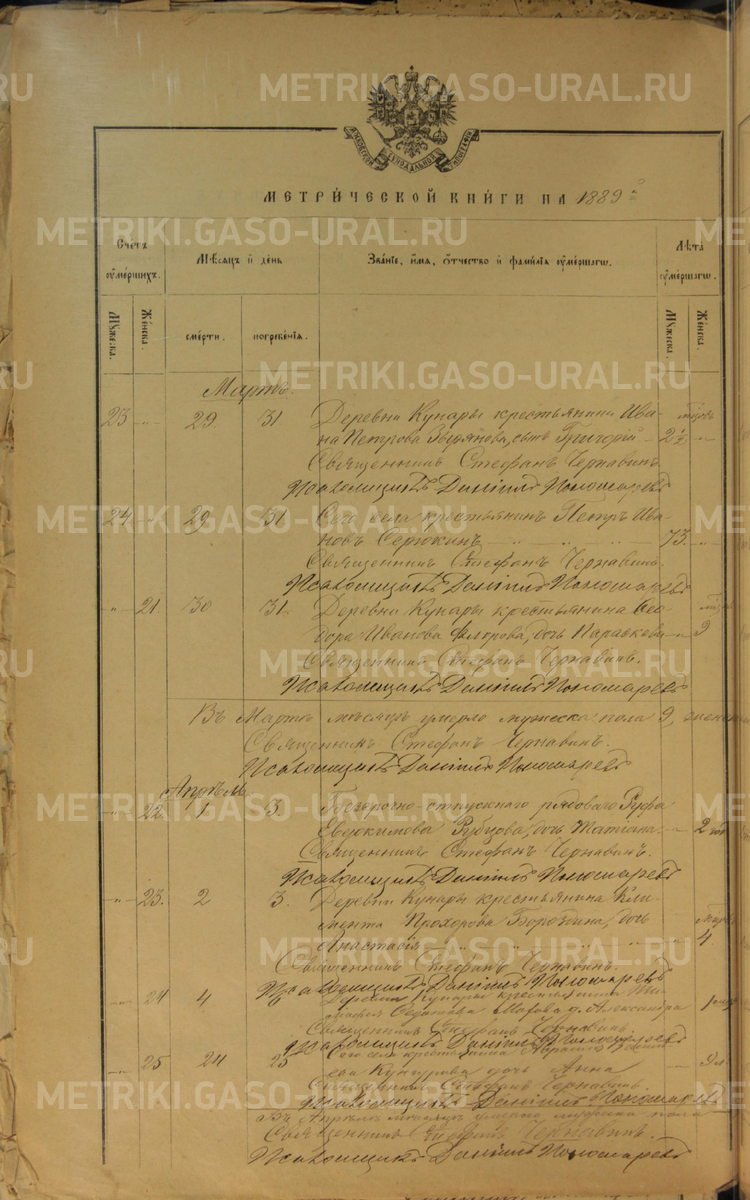 МЕТРИ́ЧЕСКОЙ КНИ́ГИ НА 1889
Счетъ
оумершихъ.
Мѣсяцъ и день
Званіе, имя, отчество и фамилія оумершагѡ.
Лѣта
оумершагѡ.
Мужеска.
Женска.
смерти.
погребенія.
Мужеска.
Женска.
Мартъ.
23 " 29 31 Деревни Кунары крестьянина Ива-
на Петрова сынъ Григорій 2½ "
Священникъ Стефанъ Чернавинъ
Псаломщикъ Даніилъ Пономаревъ
24 " 29 31 Сего села крестьянинъ Петръ Ива-
новъ Серюкинъ 73 "
Священникъ Стефанъ Чернавинъ.
Псаломщикъ Даніилъ Пономаревъ
" 21. 30 31 Деревни Кунары крестьянина Ѳео-
дора Иванова Флорова, дочь Параскева " 9
Священникъ Стефанъ Чернавинъ.
Псаломщикъ Даніилъ Пономаревъ
Въ Мартѣ мѣсяцѣ умерло мужеска пола 9, женска
Священникъ Стефанъ Чернавинъ.
Псаломщикъ Даніилъ Пономаревъ
Апрѣль
" 22. 1 3. Безсрочно-отпускнаго рядоваго Руфа
Евдокимова Рубцова, дочь Татіана. 2
Священникъ Стефанъ Чернавинъ.
Псаломщикъ Даніилъ Пономаревъ
" 23. 2 3. Деревни Кунары крестьянина Кли-
мента Прохорова дочь
Анастасія " 4
Священникъ Стефанъ Чернавинъ.
Псаломщикъ Даніилъ Пономаревъ
24 4 6 Деревни Кунары крестьянина Ти-
мофея д. Александра
Священникъ Стефанъ Чернавинъ
Псаломщикъ Даніилъ Пономаревъ
25 24 25 Сего села крестьянина
дочь Анна
Священникъ Стефанъ Чернавинъ.
Псаломщикъ Даніилъ Пономаревъ
Въ Апрѣлѣ мѣсяцѣ умерло мужеска пола
Священникъ Стефанъ Чернавинъ.
Псаломщикъ Даніилъ Пономаревъ
METRIKI.GASO-URAL.RU